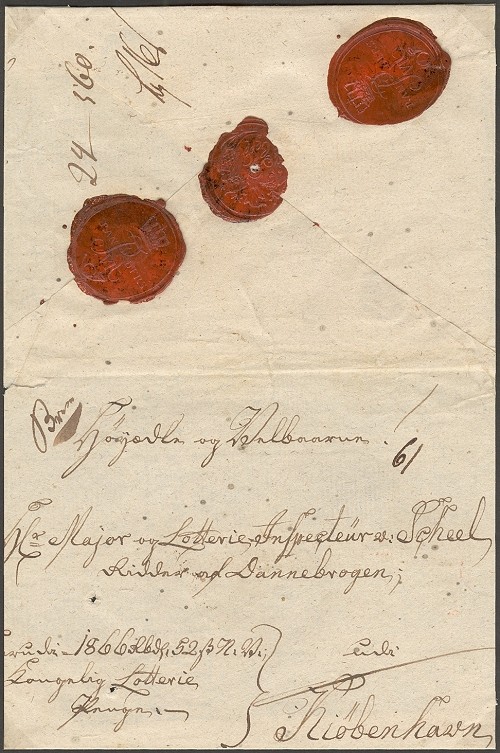 24 - 560.
Høyædle og Velbaarne
61
Hr Major og Lotterie-Inspecteür v: Scheel
Ridder af Dannebrogen,
1866 Rbdr. 52 ß N. V.
udi
Kongelig Lotterie
Penge
Kiöbenhavn